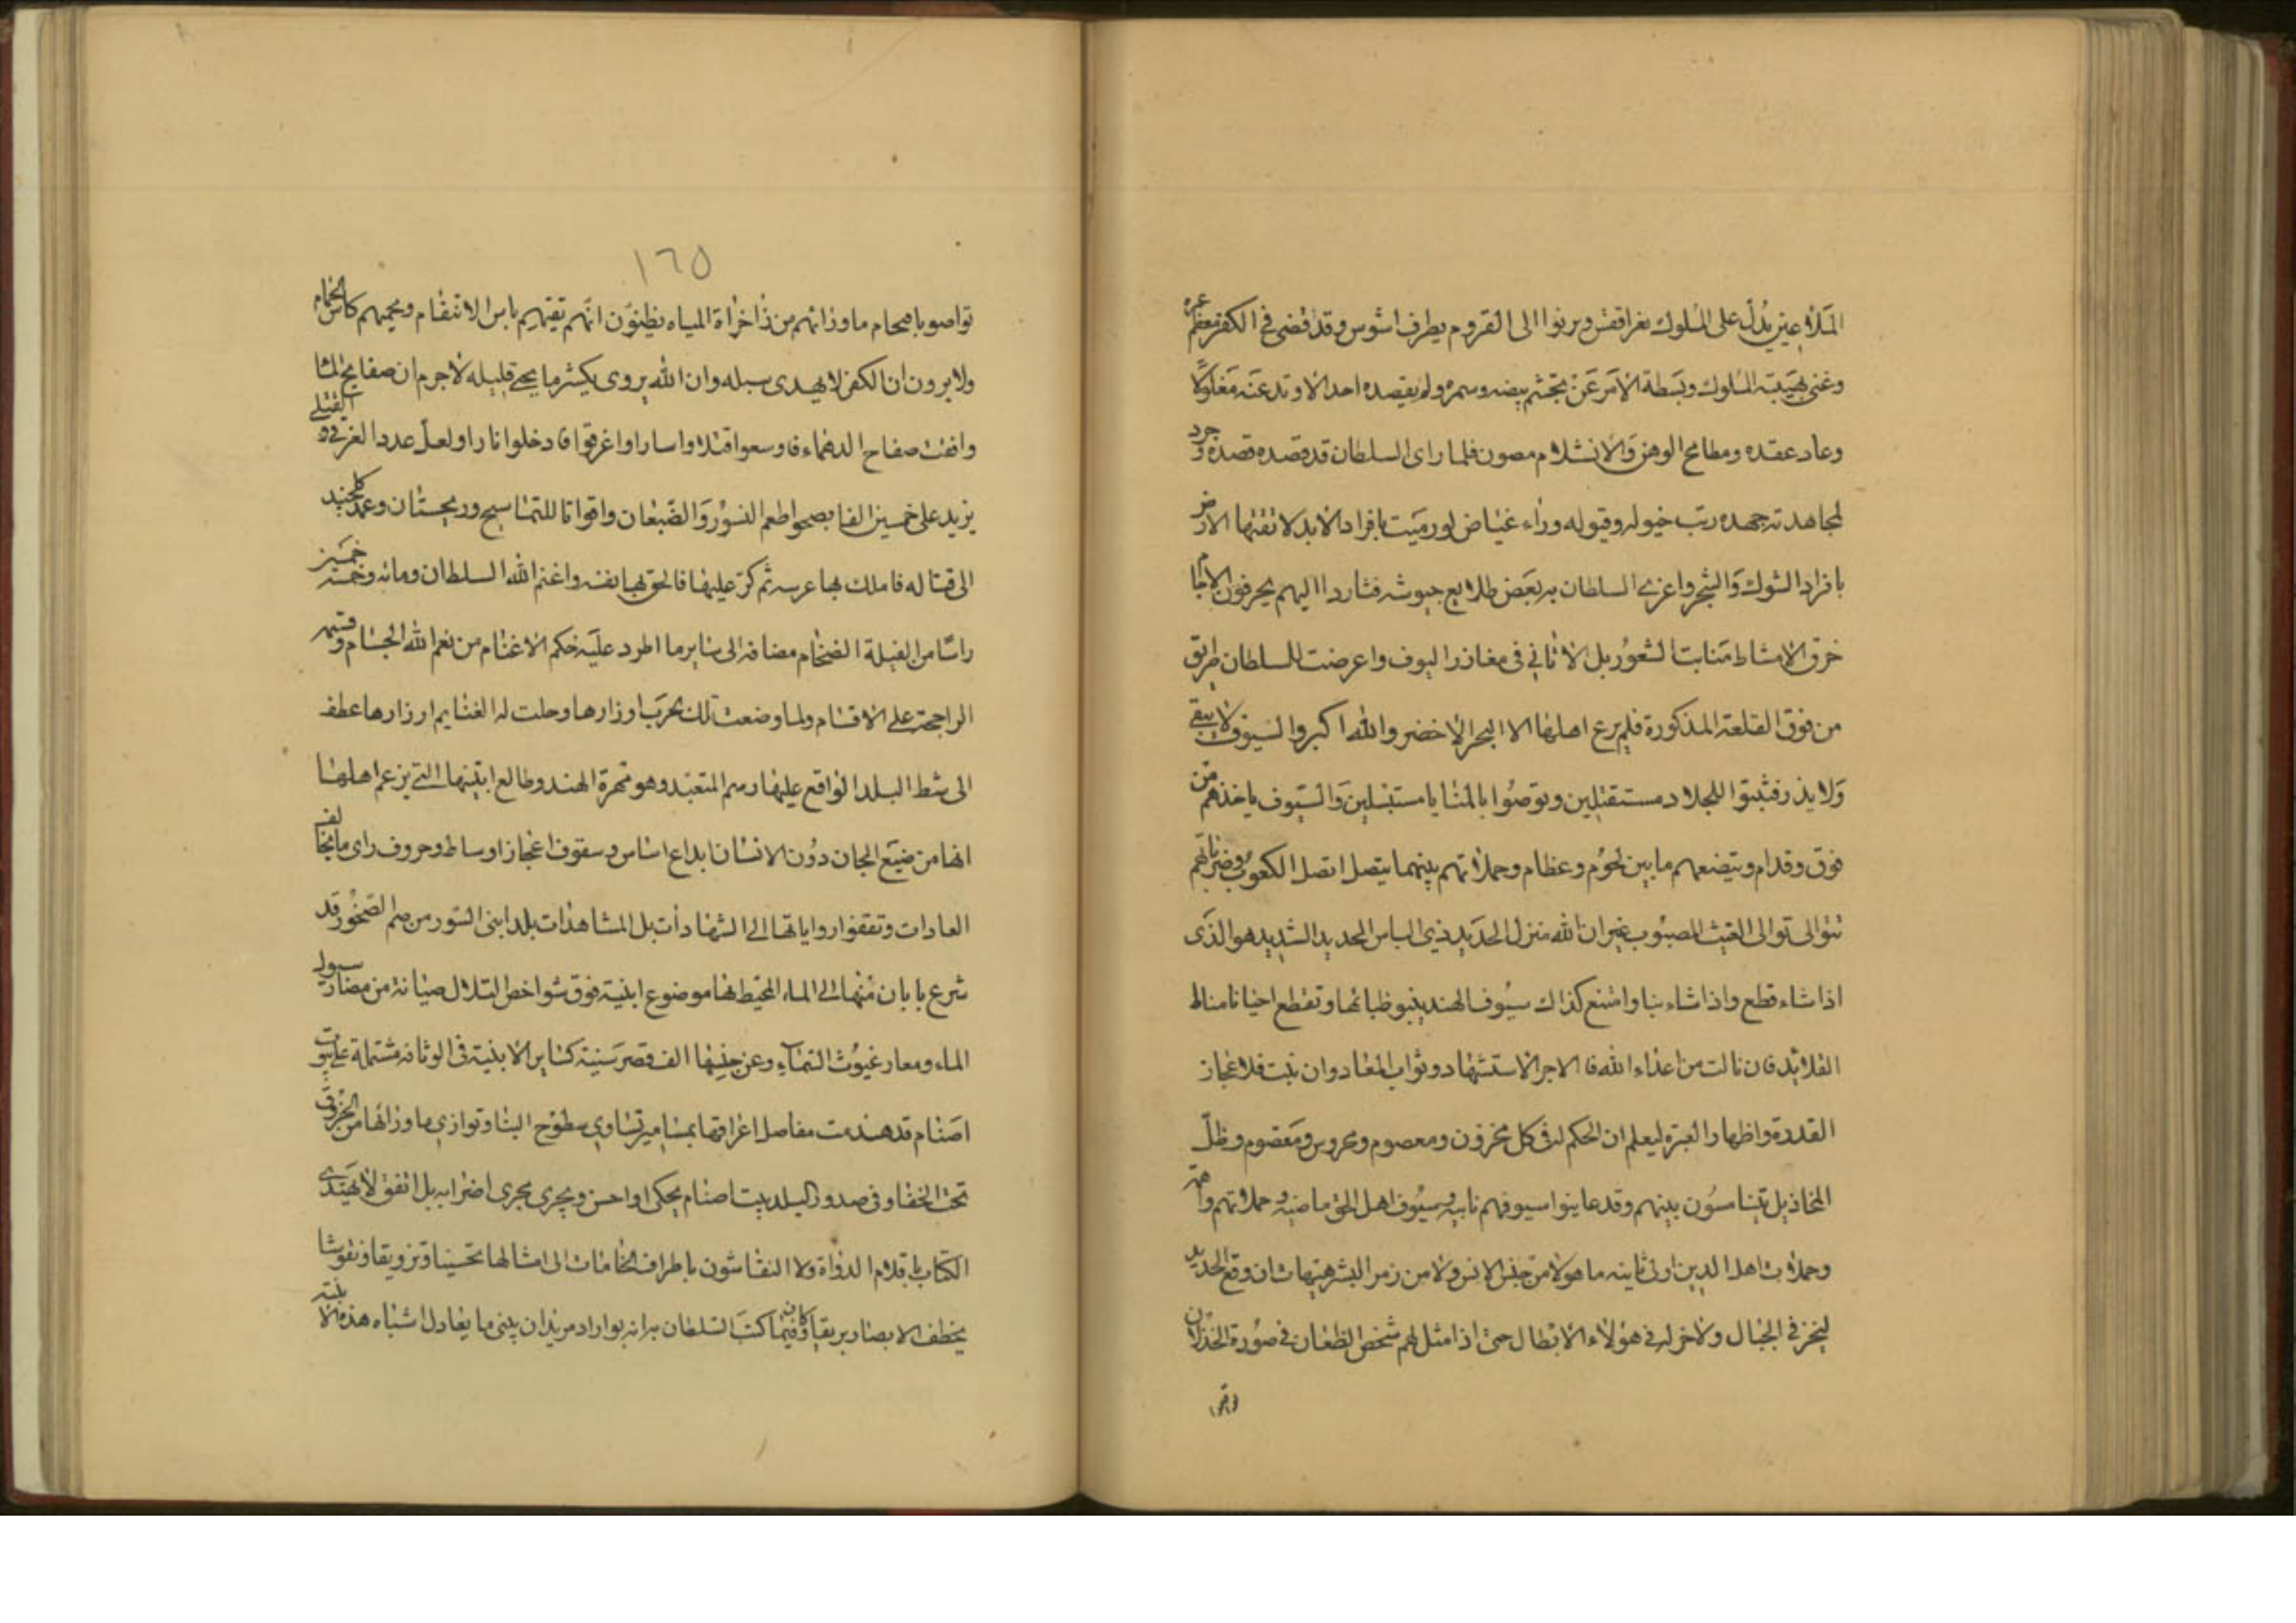 الملأ عين يدل على الملوك بعز اقعس ويرنوا الى القروم بطرف اشوس وقد قضى في الكفر معظم عمره
وغنى بهيبته الملوك وبسطة الامر عن تجشم بيضه وسمره ولم يقصده احد الا وتد عنه مغلولا
وعاد عقده ومطامح الوهن والانثلام مصون فلما راى السلطان قد قصده قصده وجرد
لمجاهدته جهده رتب خيوله وفيوله وراء غياض لو رميت بافراد الابد لا تقتها الارض
بافراد الشوك والشجر واغرى السلطان به بعض طلايع جيوشه فثاروا اليهم يخرقون الاجام
خرق الامشاط منابت الشعور بل الاثافي في مغارز اليوف واعرضت للسلطان طريق
من فوق القلعة المذكورة فلم يرع اهلها الا البحر الاخضر والله اكبر والسيوف لا يبقى
ولا يذر فثبتوا للجلاد مستقتلين وتوصوا بالمنايا مستبسلين والسيوف ياخذهم من
فوق وقدام ويتضعهم ما بين لحوم وعظام وحملاتهم بينهما يتصل اتصل الكعوب وضرباتهم
تتوالى توالى الغيث المصبوب غير ان الله منزل الحديد ذي الباس الحديد الشديد هو الذى
اذا شاء قطع واذا شاء نبا وامتنع كذاك سيوف الهند ينبو ظباتها وتقطع احيانا مناط
القلايد فان نالت من اعداء الله فا الاجر الاستشهاد وثواب المعاد وان نبت فلا عجاز
القدرة واظهار العبرة ليعلم ان الحكم له في كل مخروق ومعصوم ومحروس ومقصوم وظل
المخاذيل يتنامسون بينهم وقد عاينوا سيوفهم نابيه وسيوف اهل الحق ماضيه وحملاتهم واهية
وحملات اهل الدين اولى ثانيه ما هولا من جنس الانس ولا من زمر البشر هيهات ان وقع الحديد
ليخز في الجبال ولاخز له في هولاء الابطال حتى اذا مثل لهم شخص الطغان في صورة الخذلان
تواصو
١٦٥
تواصو باقحام ماورائهم من ذاخراة المياه يظنون انهم تقيهم باس الانتقام ويحميهم كاس الحمام
ولا يرون ان الكفر لا يهدى سبله وان الله يروى بكثير ما يحيى قليله لاجرم ان صفايح المنا
وافقت صفاح الدهماء فاوسعوا قتلا واسارا واغرقوا فادخلوا نارا ولعل عدد الغرقى والقتلى
يزيد على خمسين الفا اصبحوا طعم النسور والضبعان واقواتا للتماسيح والحيتان وعمد كلجند
الى قتاله فاملك بها عرسه ثم كر عليها فالحق بها نفسه واغنم الله السلطان ومائه وخمسه وخمسين
راسا من الفيلة الضخام مضافه الى ساير ما اطرد عليه حكم الاغنام من نعم الله الجسام وقسمه
الراجحة على الاقسام ولما وضعت تلك الحرب اوزارها وحلت له الغنايم ازرارها عطف
الى شط البلد الواقع عليها رسم المتعبد وهو مهرة الهند وطالع ابنيتها التي يزعم اهلها
انها من صنيع الجان دون الانسان ابداع اساس وسقوف اعجاز اوساط وحروف راى ما يخالف
العادات وتفقفوا رواياتها الى الشهادات بل المشاهدات بلد ابنى السور من صم الصخور قد
شرع بابان منها الى الماء المحيط بها موضوع ابنية فوق شواخص التلال صيانة من مضار سيول
الماء ومعار غيوث السماء وعن جنبيها الف قصر سنية كساير الابنية في الوثاقه مشتملة على بيوت
اصنام قد هندمت مفاصل اغراقها بمسامير تساوي سطوح البنا وتوازي ماورائها من الخروق
تحت الخفا وفى صدور البلد بيت اصنام يحكى او احسن ويجرى مجرى اضرابه بل اتفق لا يهتدى
الكتاب باقلام الدواة ولا النقاشون باطراف الخامات الى امثالها تحسينا وتزويقا ونقوشا
يخطف الابصار بريقا وكان فيما كتب السلطان به انه لو اراد مريد ان يبنى ما يعادل اشباه هذه الابنية